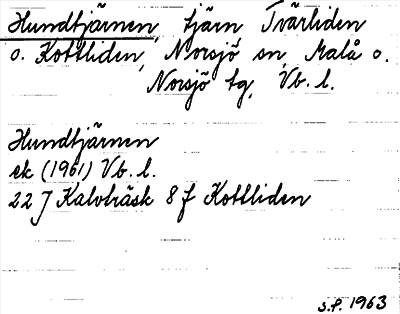 Hundtjärnen, tjärn, Tvärliden
o. Kottliden, Norsjö sn, Malå o.
Norsjö tg, Vb. l.
Hundtjärnen
ek (1961) Vb. l.
22 J Kalvträsk 8 f Kottliden
S.P. 1963